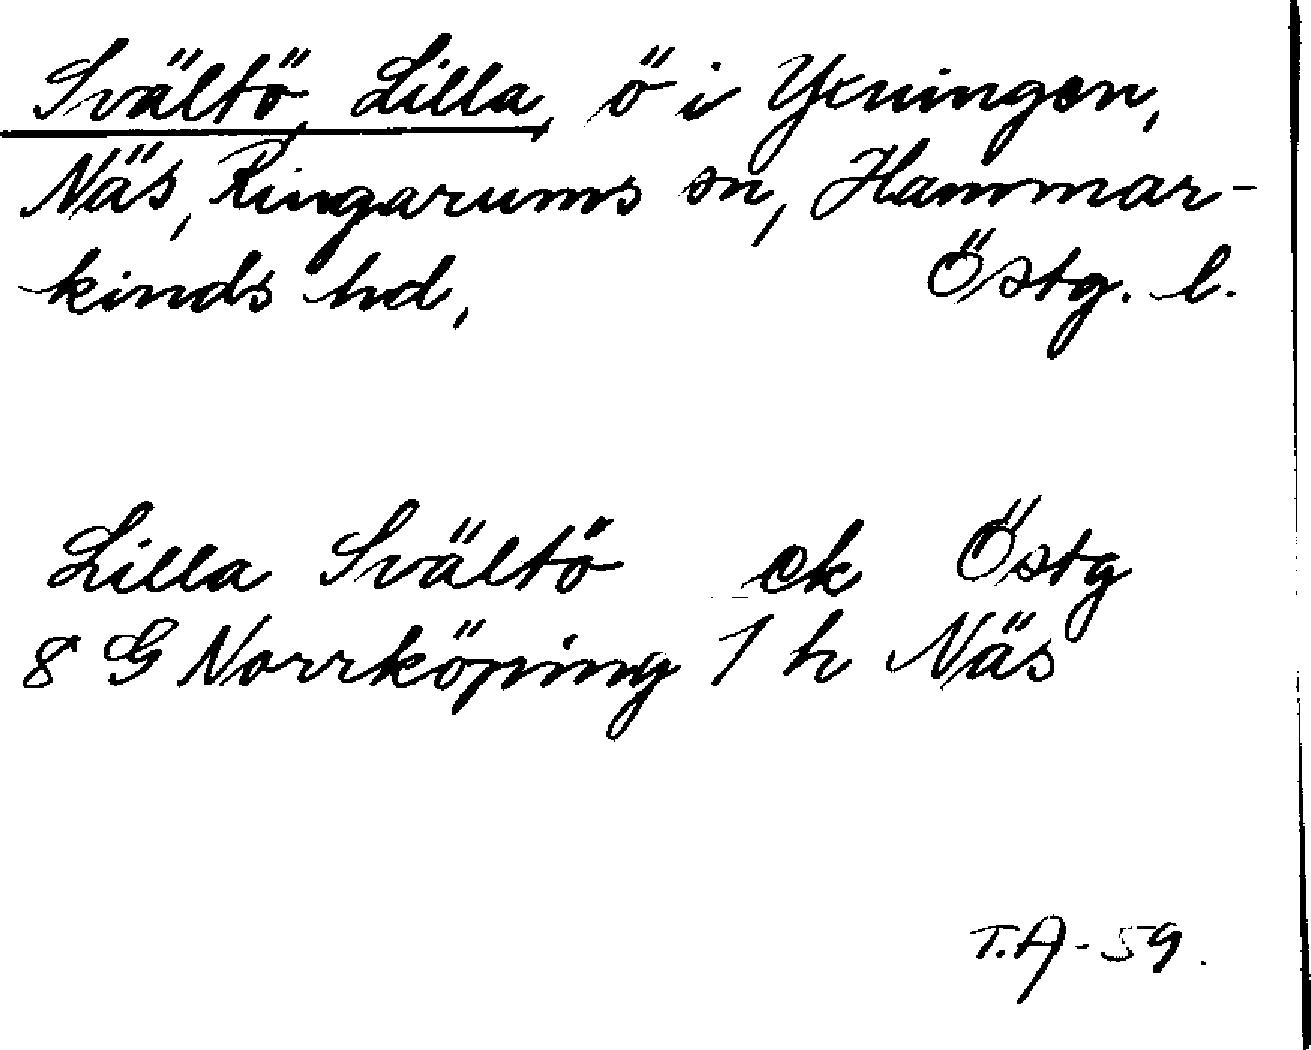 Svältö, Lilla, ö i Yxningen,
Näs, Ringarums sn, Hammar-
kinds hd, Östg. l.
Lilla Svältö ek Östg
8 G Norrköping 1 h Näs
T.A - 59.